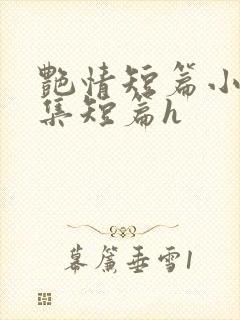 艷情短篇小
集短篇h
幕簾垂雪1